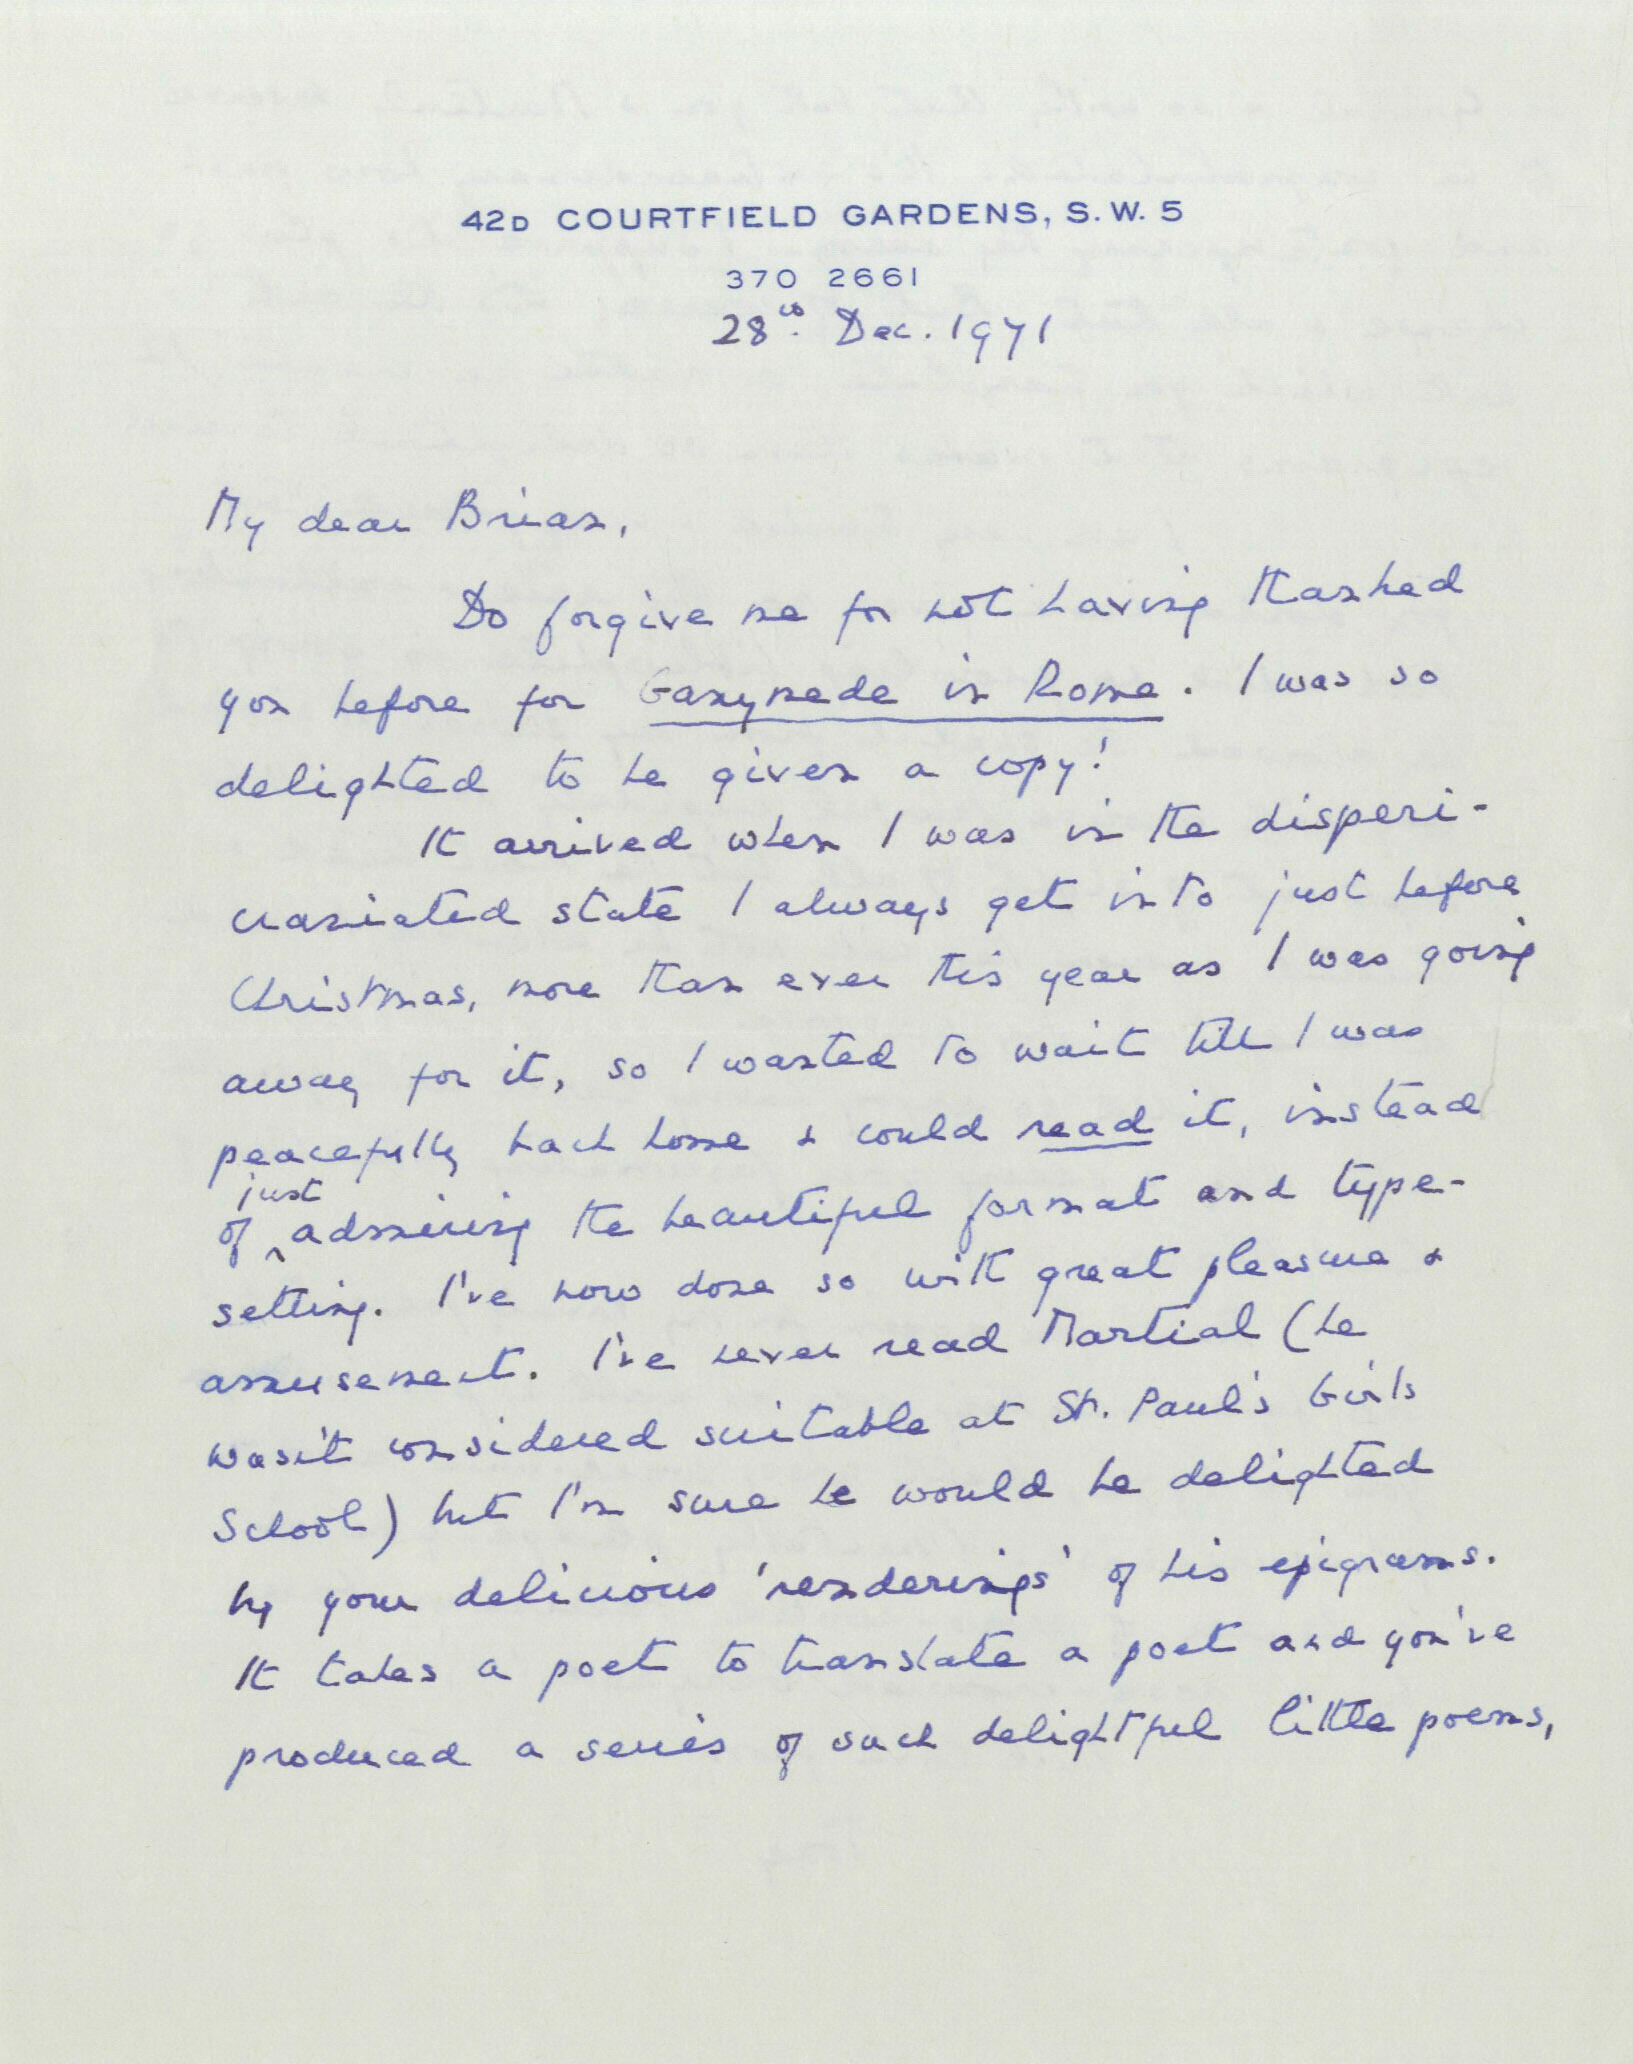 42D COURTFIELD GARDENS, S.W. 5
370 2661
28th. Dec. 1971
My dear Brian,
Do forgive me for not having thanked
you before for Ganymede in Rome. I was so
delighted to be given a copy!
It arrived when I was in the disperi-
craniated state I always get into just before
Christmas, more than ever this year as I was going
away for it, so I wanted to wait till I was
peacefully back home & could read it, instead
just
of ^ admiring the beautiful format and type-
setting. I've now done so with great pleasure &
amusement. I've never read Martial (he
wasn't considered suitable at St. Paul's Girls
School) but I'm sure he would be delighted
by your delicious 'renderings' of his epigrams.
It takes a poet to translate a poet and you've
produced a series of such delightful little poems,